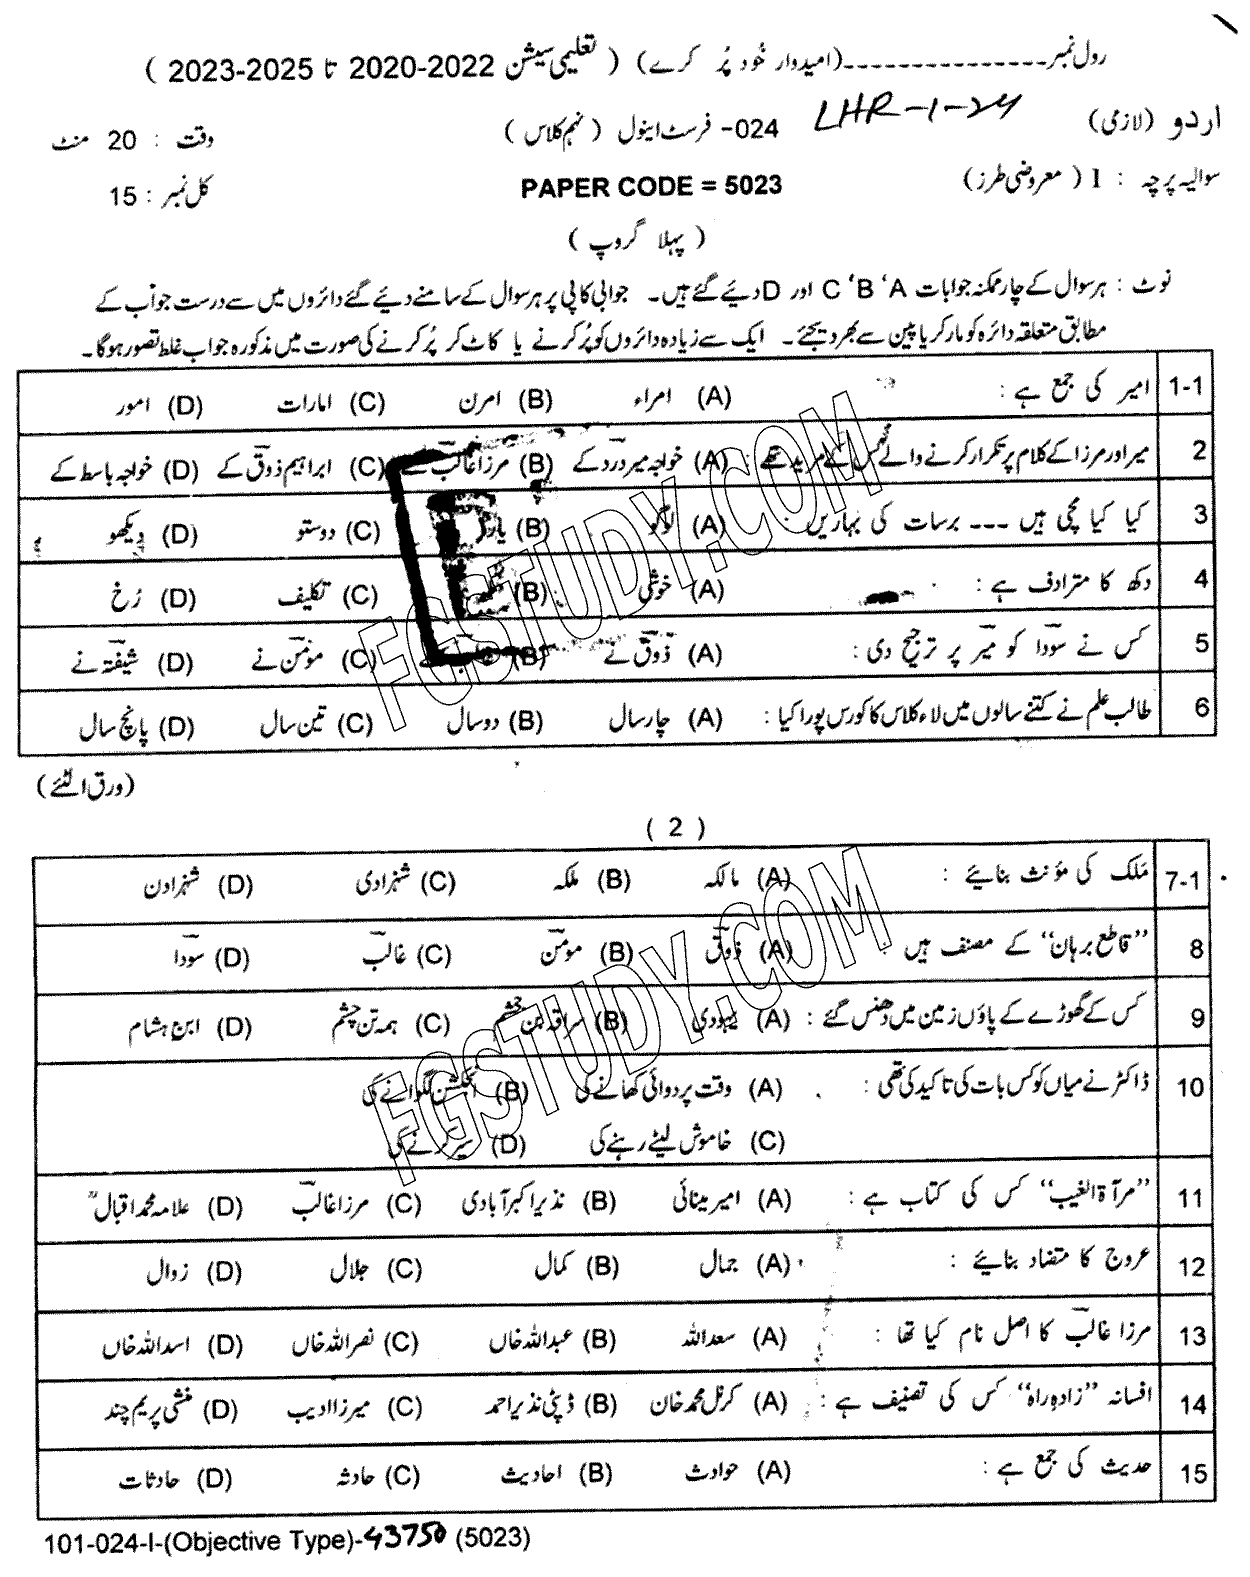 رول نمبر---------------(امیدوار خود پُر کرے) ( تعلیمی سیشن 2022-2020 تا 2025-2023 )
اردو (لازمی) LHR-1-24 024- فرسٹ اینول (نہم کلاس) وقت : 20 منٹ
سوالیہ پرچہ : I (معروضی طرز) PAPER CODE = 5023 کل نمبر : 15
( پہلا گروپ )
نوٹ : ہر سوال کے چار ممکنہ جوابات A‘ B‘ C اور D دیئے گئے ہیں۔ جوابی کاپی پر ہر سوال کے سامنے دیئے گئے دائروں میں سے درست جواب کے
مطابق متعلقہ دائرہ کو مارکر یا پین سے بھر دیجئے۔ ایک سے زیادہ دائروں کو پُر کرنے یا کاٹ کر پُر کرنے کی صورت میں مذکورہ جواب غلط تصور ہوگا۔
1-1 امیر کی جمع ہے : (A) امراء (B) امرن (C) امارات (D) امور
2 میر اور مرزا کے کلام پر تکرار کرنے والے کس کے مرید تھے (A) خواجہ میر درد کے (B) مرزا غالب کے (C) ابراہیم ذوق کے (D) خواجہ باسط کے
3 کیا کیا مچی ہیں --- برسات کی بہاریں : (A) لوگو (B) یارو (C) دوستو (D) دیکھو
4 دکھ کا مترادف ہے : (A) خوشی (B) (C) تکلیف (D) رُخ
5 کس نے سودا کو میر پر ترجیح دی : (A) ذوق نے (B) (C) مومن نے (D) شیفتہ نے
6 طالب علم نے کتنے سالوں میں لاء کلاس کا کورس پورا کیا : (A) چار سال (B) دو سال (C) تین سال (D) پانچ سال
(ورق الٹئے)
( 2 )
7-1 مَلک کی مؤنث بنائیے : (A) مالکہ (B) ملکہ (C) شہزادی (D) شہزادن
8 ‘‘قاطع برہان’’ کے مصنف ہیں : (A) ذوق (B) مومن (C) غالب (D) سودا
9 کس کے گھوڑے کے پاؤں زمین میں دھنس گئے : (A) یہودی (B) سراقہ بن جشم (C) ہمہ تن چشم (D) ابن ہشام
10 ڈاکٹر نے میاں کو کس بات کی تاکید کی تھی : (A) وقت پر دوائی کھانے کی (B) انجکشن لگوانے کی
(C) خاموش لیٹے رہنے کی (D) سیر کرنے کی
11 ‘‘مرآۃ الغیب’’ کس کی کتاب ہے : (A) امیر مینائی (B) نذیر اکبر آبادی (C) مرزا غالب (D) علامہ محمد اقبالؒ
12 عروج کا متضاد بنائیے : (A) جمال (B) کمال (C) جلال (D) زوال
13 مرزا غالب کا اصل نام کیا تھا : (A) سعد اللہ (B) عبداللہ خاں (C) نصر اللہ خاں (D) اسد اللہ خاں
14 افسانہ ‘‘زادِ راہ’’ کس کی تصنیف ہے : (A) کرنل محمد خان (B) ڈپٹی نذیر احمد (C) میرزا ادیب (D) منشی پریم چند
15 حدیث کی جمع ہے : (A) حوادث (B) احادیث (C) حادثہ (D) حادثات
101-024-I-(Objective Type)-43750 (5023)
FGSTUDY.COM
FGSTUDY.COM